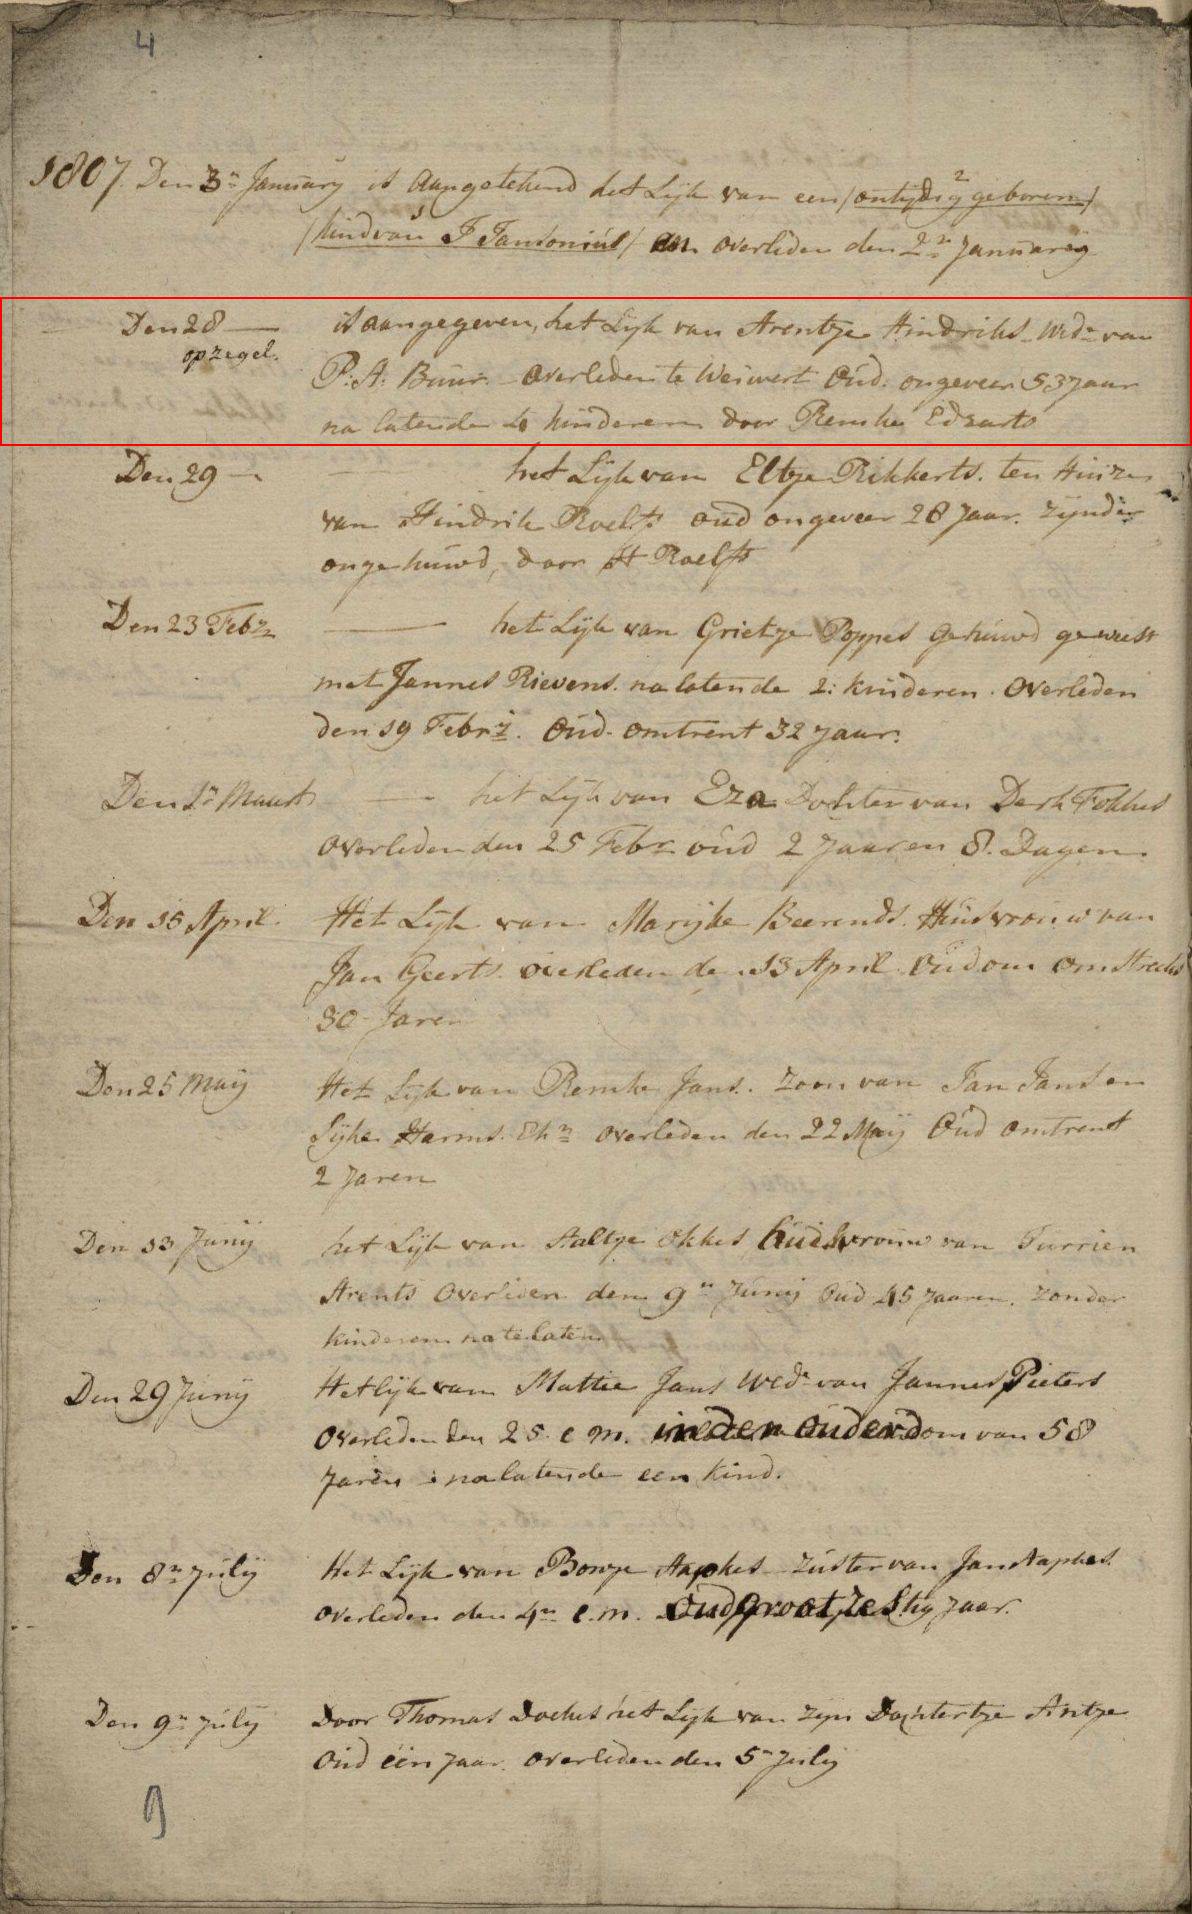 4
1807. Den 3n January is Aangetekend het Lijk van een /ontijdig 2 geboren/
/kind van 1 J Jansonius/ en overleden den 2n January
Den 28 — is aangegeven, het Lijk van Arentje Hindriks Wedn van
op zegel.
P: A: Buur. Overleden te Weiwert Oud. ongeveer 53 Jaar
na latende 4 kinderen door Remke Edzarts
Den 29 — het Lijk van Eltje Rikkerts. ten Huize
van Hindrik Roelfs oud ongeveer 28 Jaar. zijnde
ongehuwd, door H Roelfs
Den 23 Febr — het Lijk van Grietje Poppes Gehuwd geweest
met Jannes Rievens. nalatende 2: kinderen. Overleden
den 19 Febr. Oud omtrent 32 Jaar.
Den 1n Maart — het Lijk van Eza Dochter van Derk Fokkes
Overleden den 25 Febr oud 2 Jaaren 8. Dagen.
Den 15 April. Het Lijk van Marijke Beerends. Huisvrouw van
Jan Geerts. overleden den 13 April oud om omstreeks
30 Jaren
Den 25 Maij Het Lijk van Remke Jans. Zoon van Jan Jans en
Sijke Harms. Ehn overleden den 22 Maij Oud omtrent
2 Jaren
Den 13 Junij het Lijk van Aaltje Okkes huisvrouw van Jurrien
Arents Overleden den 9n Junij Oud 45 Jaaren. zonder
kinderen na te laten
Den 29 Junij Het lijk van Mattie Jans Wedn van Jannes Pieters
Overleden den 25. e. m. in den Ouderdom van 58
Jaren nalatende een kind.
Den 8n Julij Het Lijk van Bouje Aapkes Zuster van Jan Aapkes.
overleden den 4n e. m. Oud groot Zestig Jaar.
Den 9n Julij Door Thomas Doekes het Lijk van zijn Dochtertje Antje
Oud één Jaar. overleden den 5n Julij
9